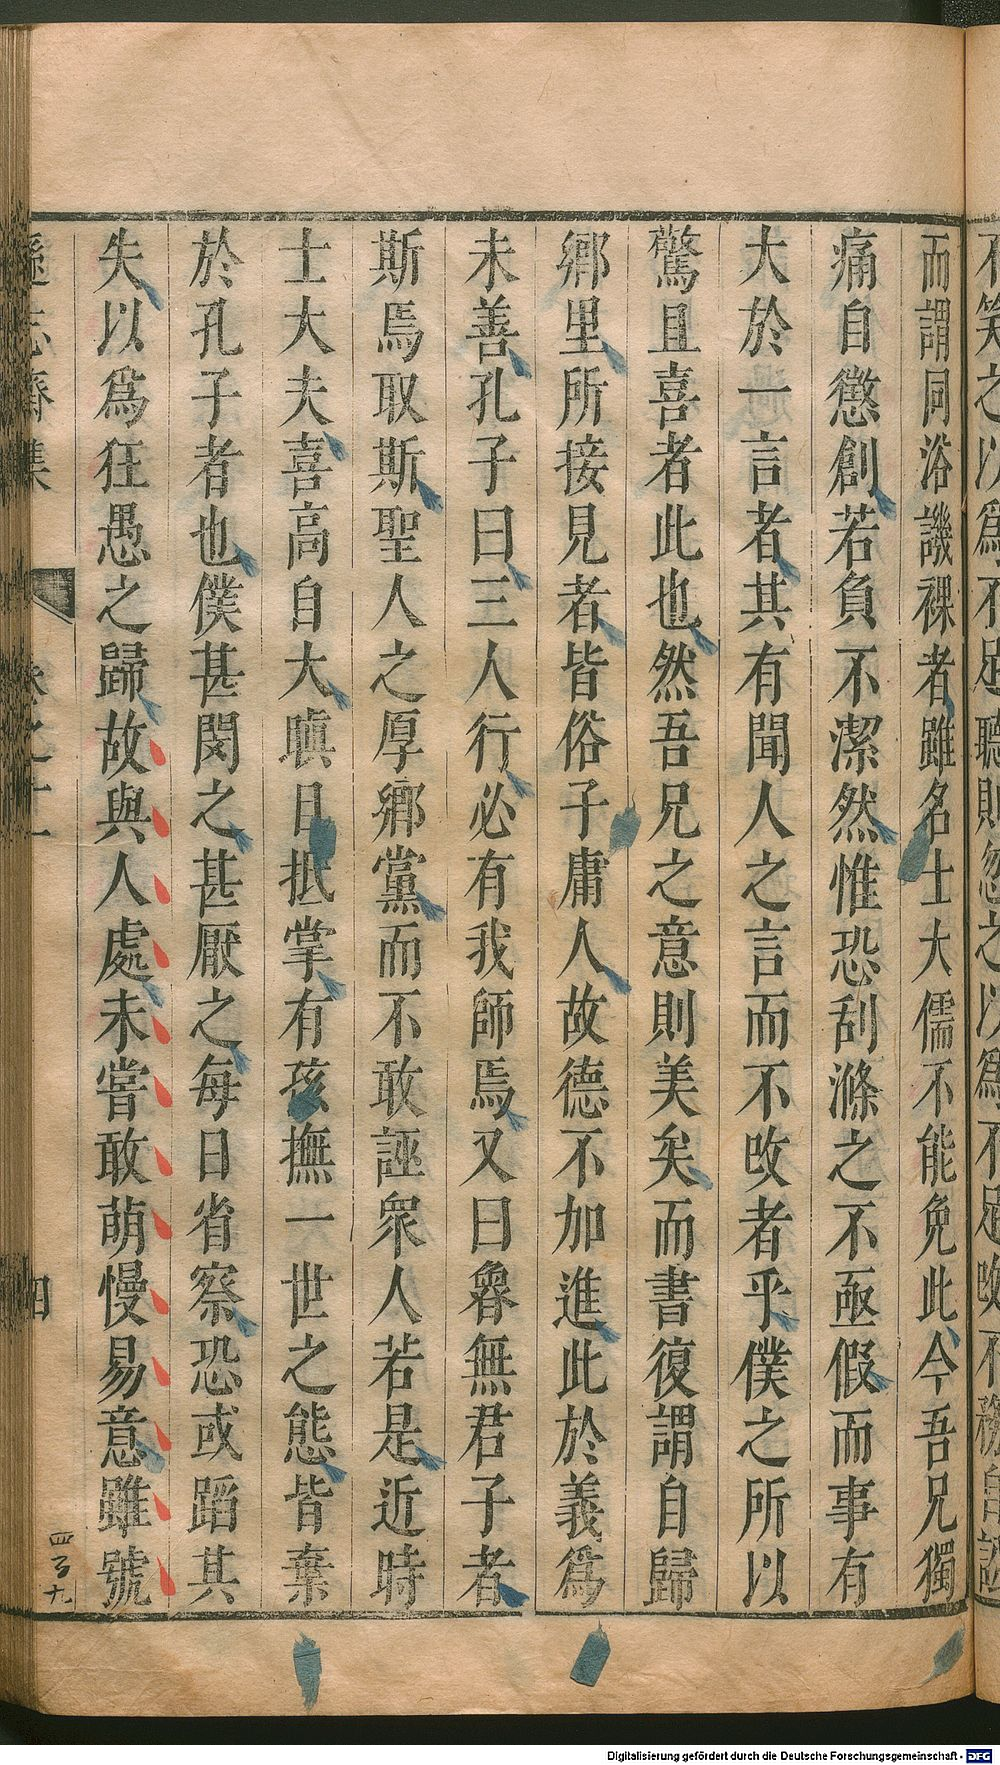 而謂同浴譏裸者雖名士大儒不能免此今吾兄獨
痛自懲創若負不潔然惟恐刮滌之不亟假而事有
大於一言者其有聞人之言而不攺者乎僕之所以
驚且喜者此也然吾兄之意則美矣而書復謂自歸
鄉里所接見者皆俗子庸人故德不加進此於義爲
未善孔子曰三人行必有我師焉又曰魯無君子者
斯焉取斯聖人之厚鄉黨而不敢誣衆人若是近時
士大夫喜高自大瞋目抵掌有孩撫一世之態皆棄
於孔子者也僕甚閔之甚厭之每日省察恐或蹈其
失以爲狂愚之歸故與人處未嘗敢萌慢易意雖號
遜志齋集
卷之十一
四
Digitalisierung gefördert durch die Deutsche Forschungsgemeinschaft - DFG